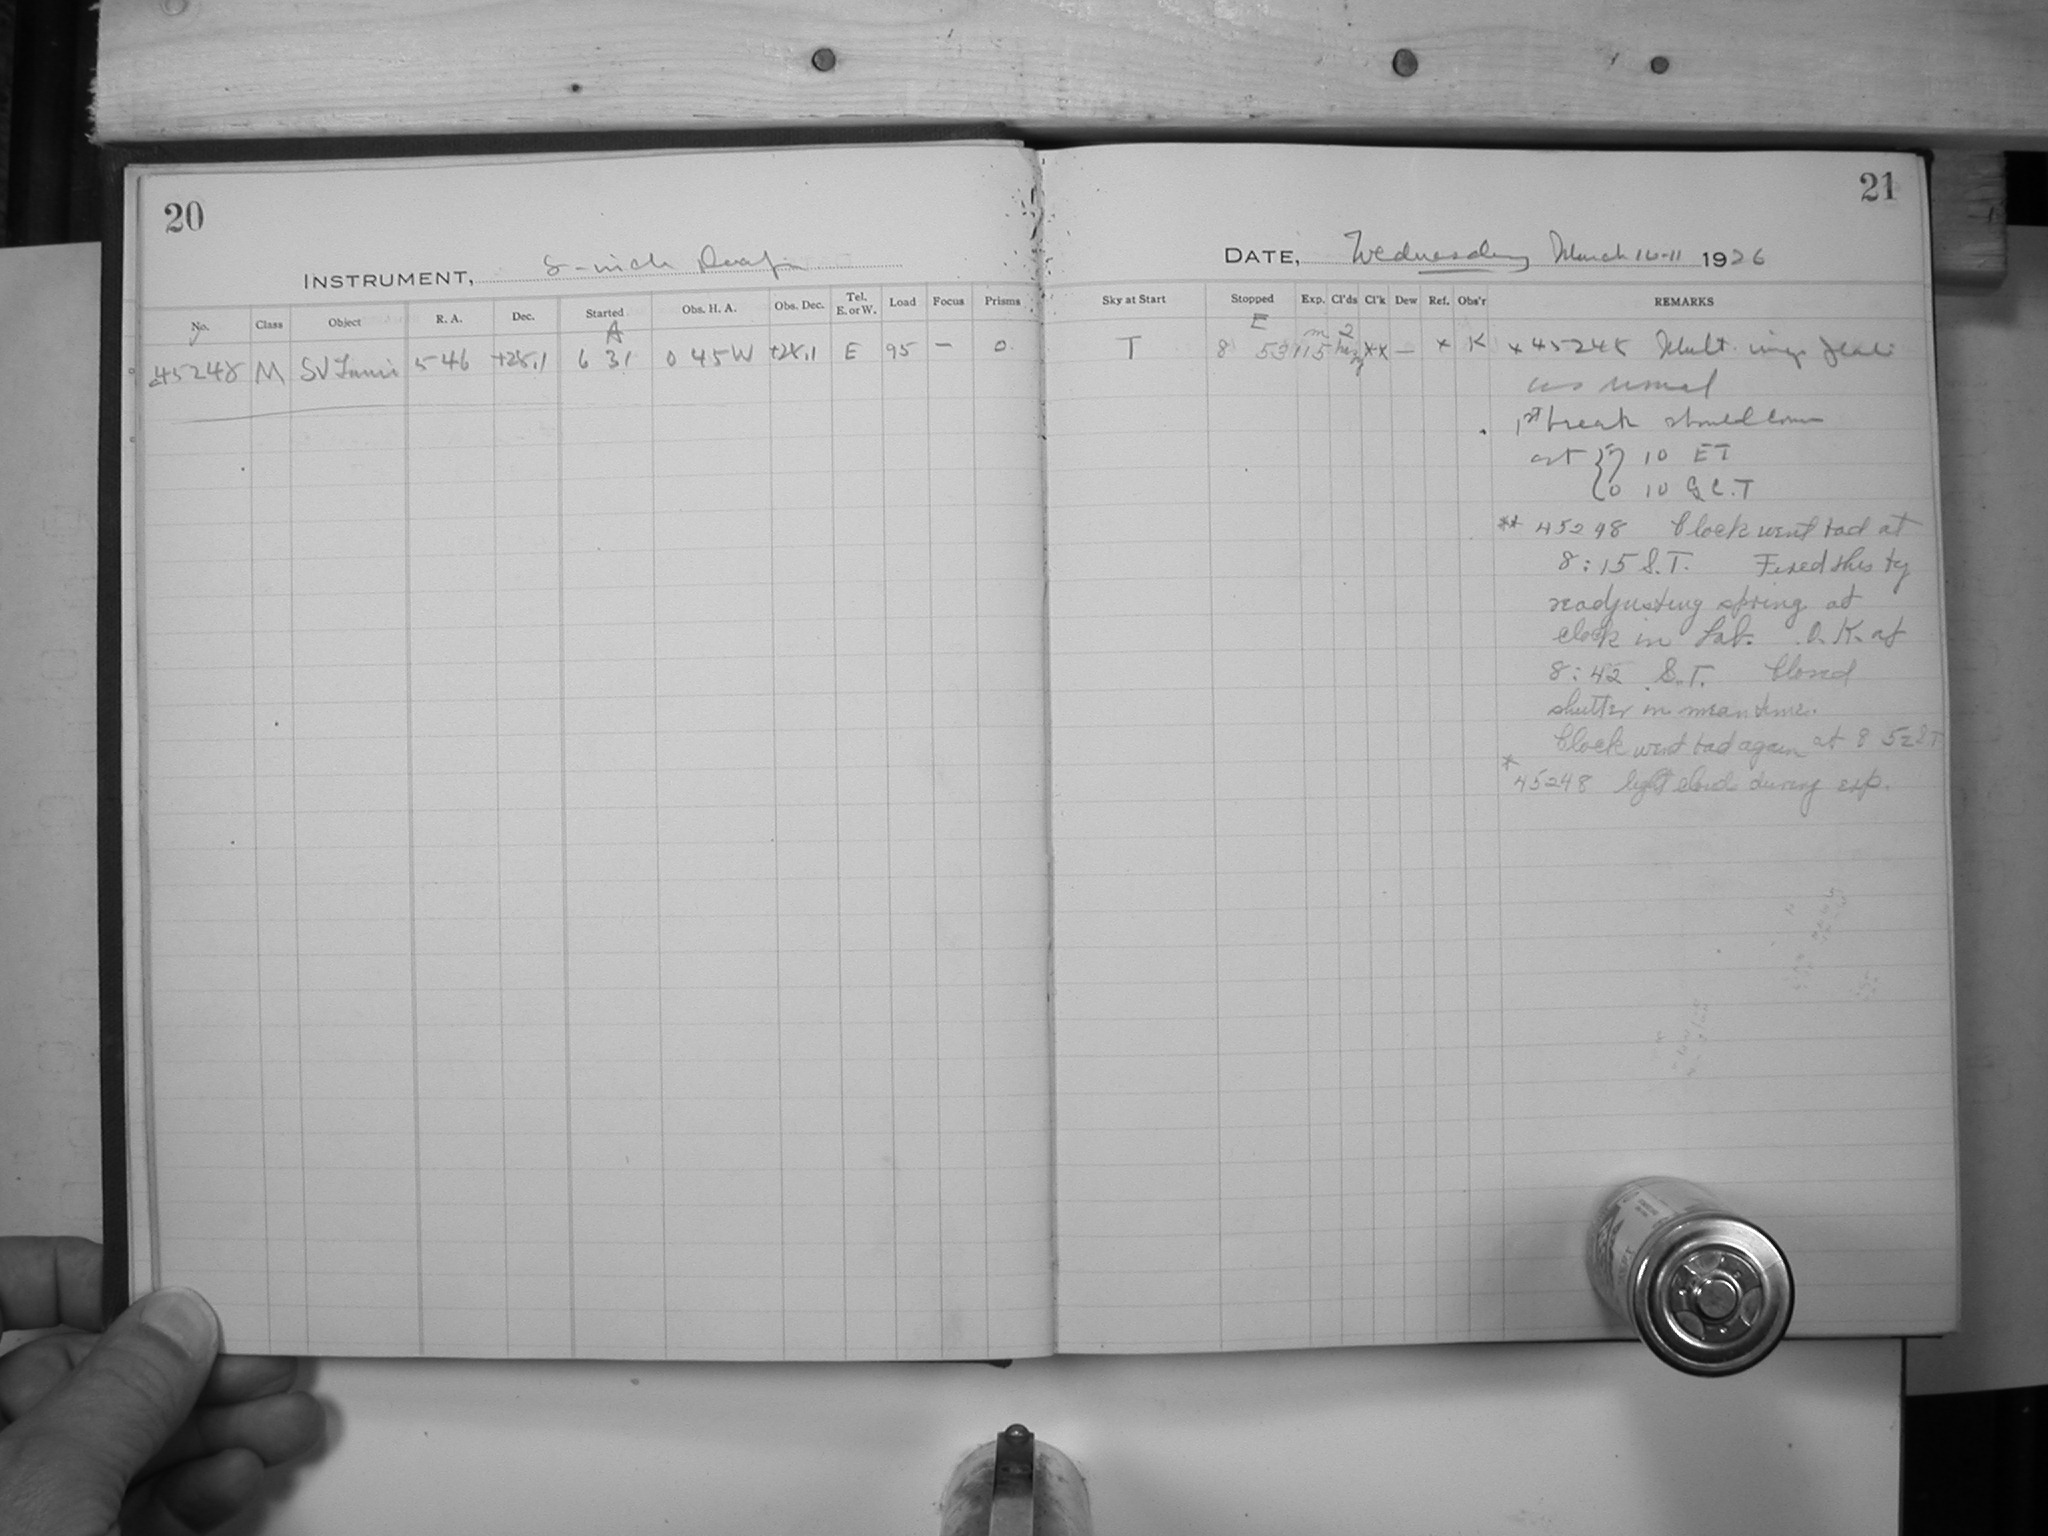 20
INSTRUMENT, 8-inch Draper
No. Class Object R. A. Dec. Started Obs. H. A. Obs. Dec. Tel. E. or W. Load Focus Prisms
A
45248 M SV Tauri 5 46 +28.1 6 31 0 45 W +28.1 E 95 – 0
21
DATE, Wednesday March 10-11 1926
Sky at Start Stopped Exp. Cl'ds Cl'k Dew Ref. Obs'r REMARKS
E m 2
T 8 53 115 hazy ** – x K x 45248 Mult. image
as usual
1st break should come
at { 7 10 ET
0 10 G.C.T
** 45248 Clock went bad at
8:15 S.T. Fixed this by
readjusting spring at
clock in Lab. O.K. at
8:42 S.T. Closed
shutter in meantime.
Clock went bad again at 8 52 ST
* 45248 light clouds during exp.